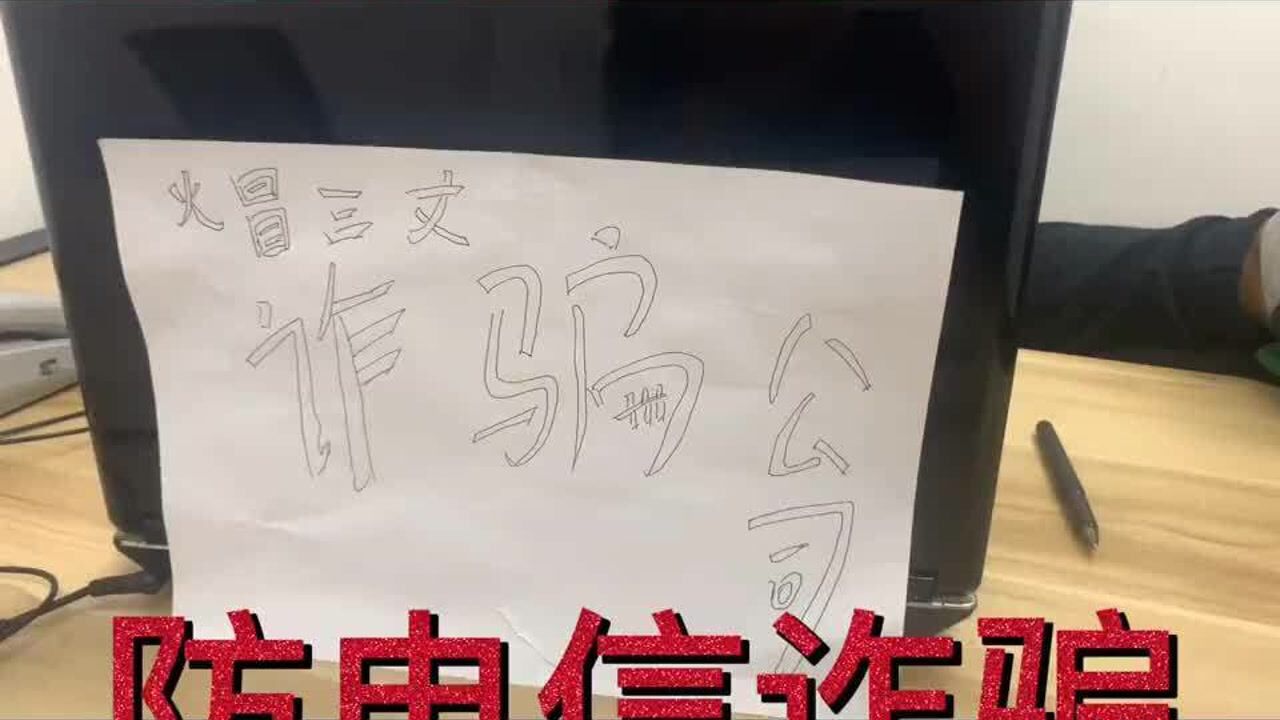 火冒三丈
诈骗公司
防电信诈骗